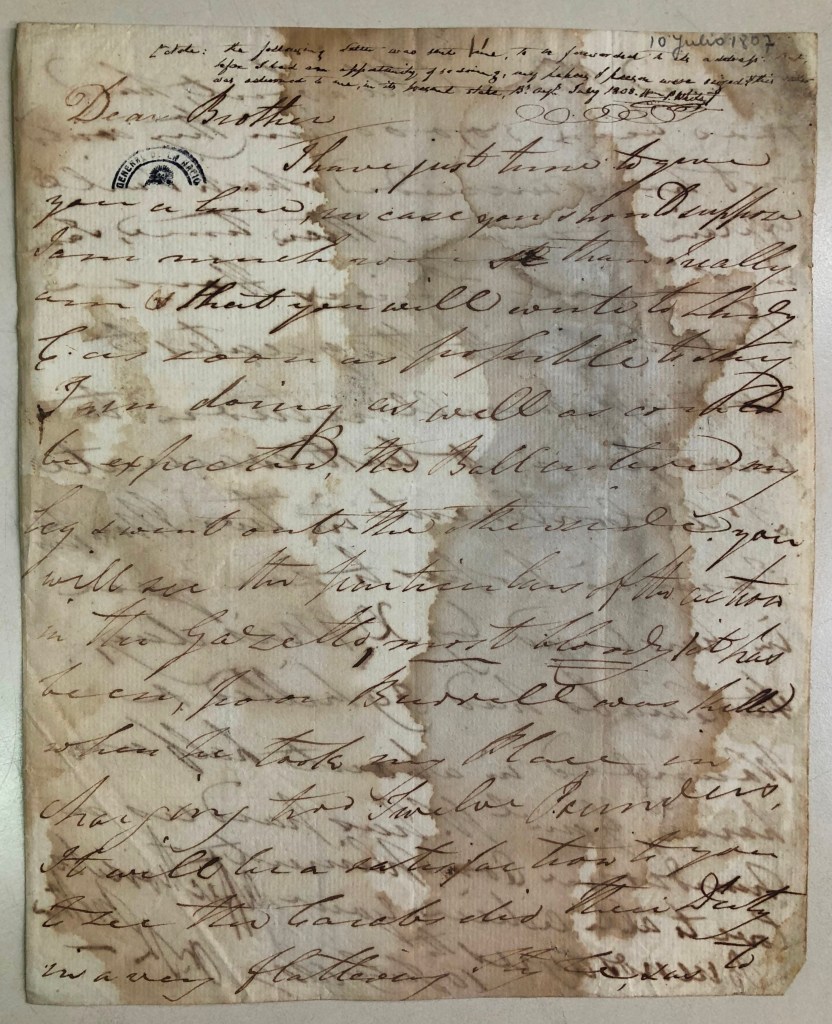 10 Julio 1807
Note: the following letter was sent me, to be forwarded to its address. But,
before I had an opportunity of so doing, my papers & person were seized & this letter
was returned to me, in its present state, Bs. Ays. July 1808.
Dear Brother
GENERAL DE LA NACIO
I have just time to give
you a line, in case you should suppose
I am much worse than I really
am & that you will write to Lady
C. as soon as possible to say
I am doing as well as could
be expected, the Ball entered my
leg & went out the other side. you
will see the particulars of the action
in the Gazette, most bloody it has
been, poor Burrell was killed
when he took my Place in
charging two Twelve Pounders,
It will be a satisfaction to you
to see the Carabs did their Duty
in a very flattering